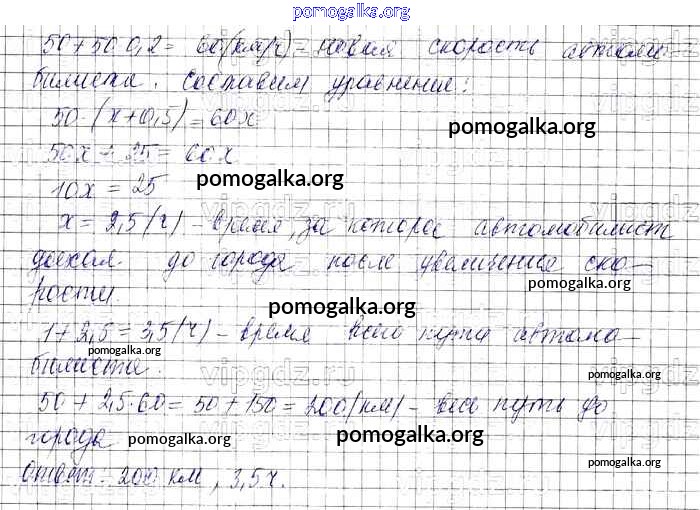 pomogalka.org
50+50·0,2= 60(км/ч) – новая скорость автомо-
билиста. Составим уравнение:
50·(x+0,5)=60x
pomogalka.org
50x + 25= 60x
10x = 25
pomogalka.org
x= 2,5(ч) – время, за которое автомобилист
доехал до города после увеличения ско-
pomogalka.org
рости.
pomogalka.org
1+2,5=3,5(ч) – время всего пути автомо-
pomogalka.org
билиста.
vipgdz.ru
pomogalka.org
50 + 2,5·60= 50+150=200(км) – весь путь до
города
pomogalka.org
pomogalka.org
pomogalka.org
Ответ: 200 км, 3,5ч.